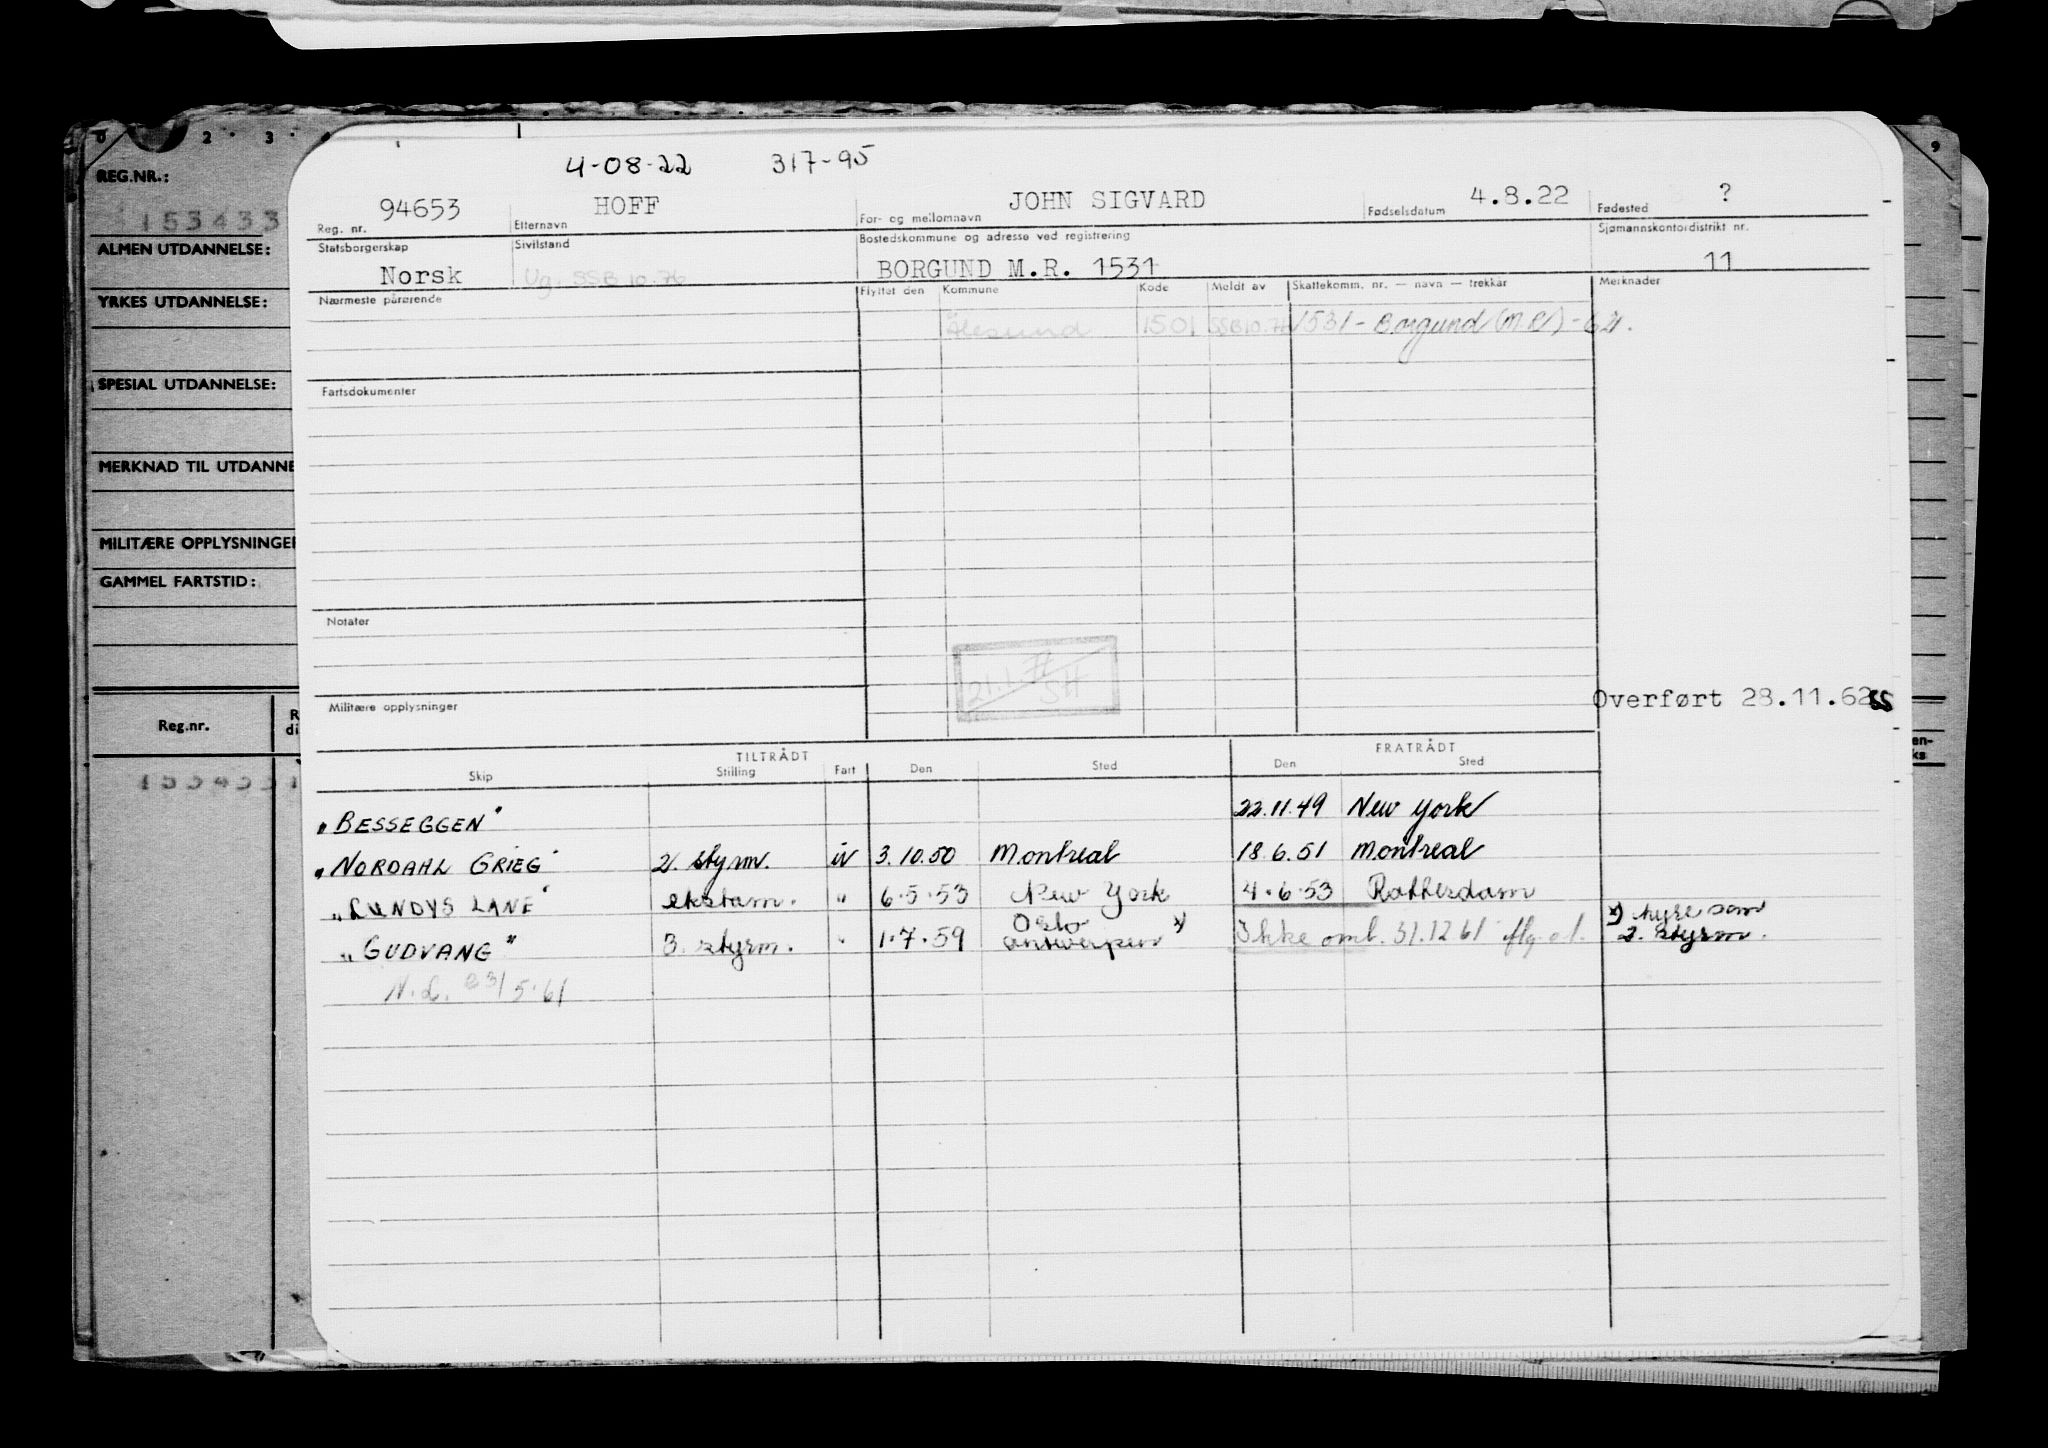 0 2 3 9
REG.NR.:
153433
ALMEN UTDANNELSE:
YRKES UTDANNELSE:
SPESIAL UTDANNELSE:
MERKNAD TIL UTDANNE
MILITÆRE OPPLYSNINGER
GAMMEL FARTSTID:
Reg.nr. R
di
153433
en-
ks
4-08-22 317-95
94653 HOFF JOHN SIGVARD 4.8.22 ?
Reg. nr. Etternavn For- og mellomnavn Fødselsdatum Fødested
Statsborgerskap Sivilstand Bostedskommune og adresse ved registrering Sjømannskontordistrikt nr.
Norsk Ug. SSB 10.76 BORGUND M.R. 1531 11
Nærmeste pårørende Flyttet den Kommune Kode Meldt av Skattekomm. nr. — navn — trekkår Merknader
Ålesund 1501 SSB 10.76 1531 - Borgund (M.R.) - 62.
Fartsdokumenter
Notater
21.1.77
SH
Militære opplysninger
Overført 28.11.62
TILTRÅDT FRATRÅDT
Skip Stilling Fart Den Sted Den Sted
"BESSEGGEN" 22.11.49 New York
"NORDAHL GRIEG" 2. styrm. 3.10.50 Montreal 18.6.51 Montreal
"LUNDYS LANE" ekstam. " 6.5.53 New York 4.6.53 Rotterdam
Oslo x) hyre som
"GUDVANG" 3. styrm. " 1.7.59 Antwerpen x) Ikke omb. 31.12 61 iflg. 2. styrm.
N.L. 31/5.61